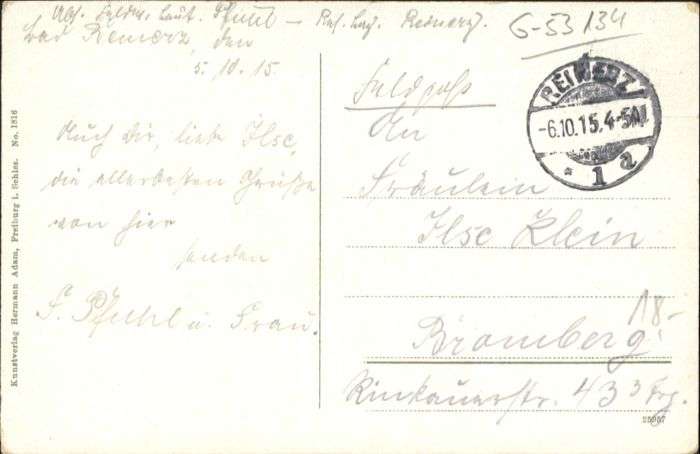 Abs. Feldw. Leut. Pfuhl – Res. Laz. Reinerz.
Bad Reinerz, den
5. 10. 15.
Auch Dir, liebe Ilse,
die allerbesten Grüße
von hier
senden
F. Pfuhl u. Frau.
Kunstverlag Hermann Adam, Freiburg i. Schles. No. 1816
G-53134
REINERZ
-6.10.15.4-5N.
* 1 a
Feldpost
An
Fräulein
Ilse Klein
18-
Bromberg
Rinkauerstr. 43 3 Trg.
25957